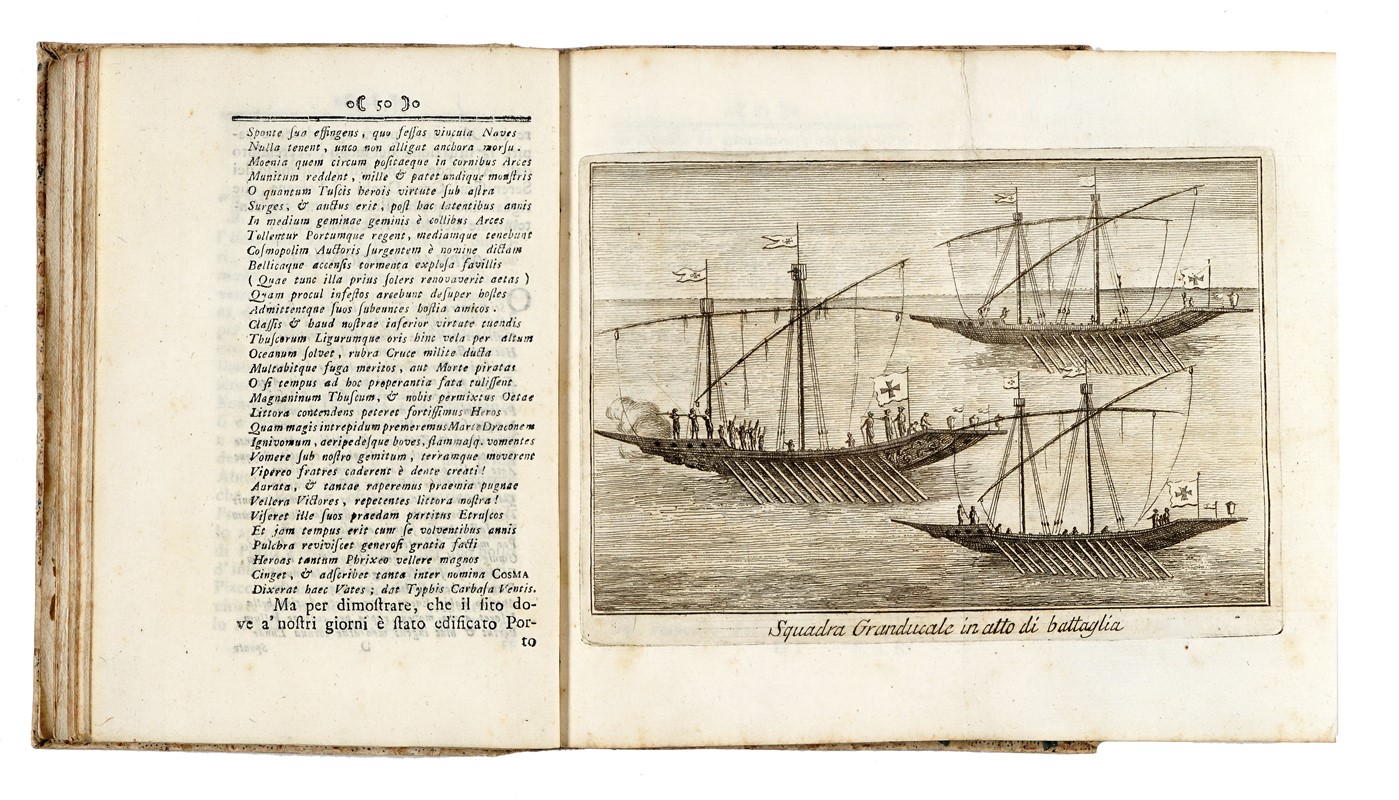 50
Sponte ſua effingens, quo feſſas vincula Naves
Nulla tenent, unco non alligat anchora morſu.
Moenia quem circum poſitaeque in cornibus Arces
Munitum reddent, mille & patet undique monſtris
O quantum Tuſcis herois virtute ſub aſtra
Surges, & auctus erit, poſt hac latentibus annis
In medium geminae geminis è collibus Arces
Tollentur Portumque regent, mediamque tenebunt
Coſmopolim Auctoris ſurgentem è nomine dictam
Bellicaque accenſis tormenta exploſa favillis
( Quae tunc illa prius ſolers renovaverit aetas )
Quam procul infeſtos arcebunt deſuper hoſtes
Admittentque ſuos ſubeuntes hoſtia amicos.
Claſſis & haud noſtrae inferior virtute tuendis
Thuſcorum Ligurumque oris hinc vela per altum
Oceanum ſolvet, rubra Cruce milite ducta
Multabitque fuga meritos, aut Morte piratas
O ſi tempus ad hoc properantia fata tuliſſent
Magnaninum Thuſcum, & nobis permixtus Oetae
Littora contendens peteret fortiſſimus Heros
Quam magis intrepidum premeremus Marte Draconem
Ignivomum, aeripedeſque boves, flammaſq. vomentes
Vomere ſub noſtro gemitum, terramque moverent
Vipereo fratres caderent è dente creati!
Aurata, & tantae raperemus praemia pugnae
Vellera Victores, repetentes littora noſtra!
Viſeret ille ſuos praedam partitus Etruſcos
Et jam tempus erit cum ſe volventibus annis
Pulchra reviviſcet generoſi gratia facti
Heroas tantum Phrixeo vellere magnos
Cinget, & adſcribet tanta inter nomina COSMA
Dixerat haec Vates; dat Typhis Carbaſa Ventis.
Ma per dimoſtrare, che il ſito do-
ve a' noſtri giorni è ſtato edificato Por-
to
Squadra Granducale in atto di battaglia